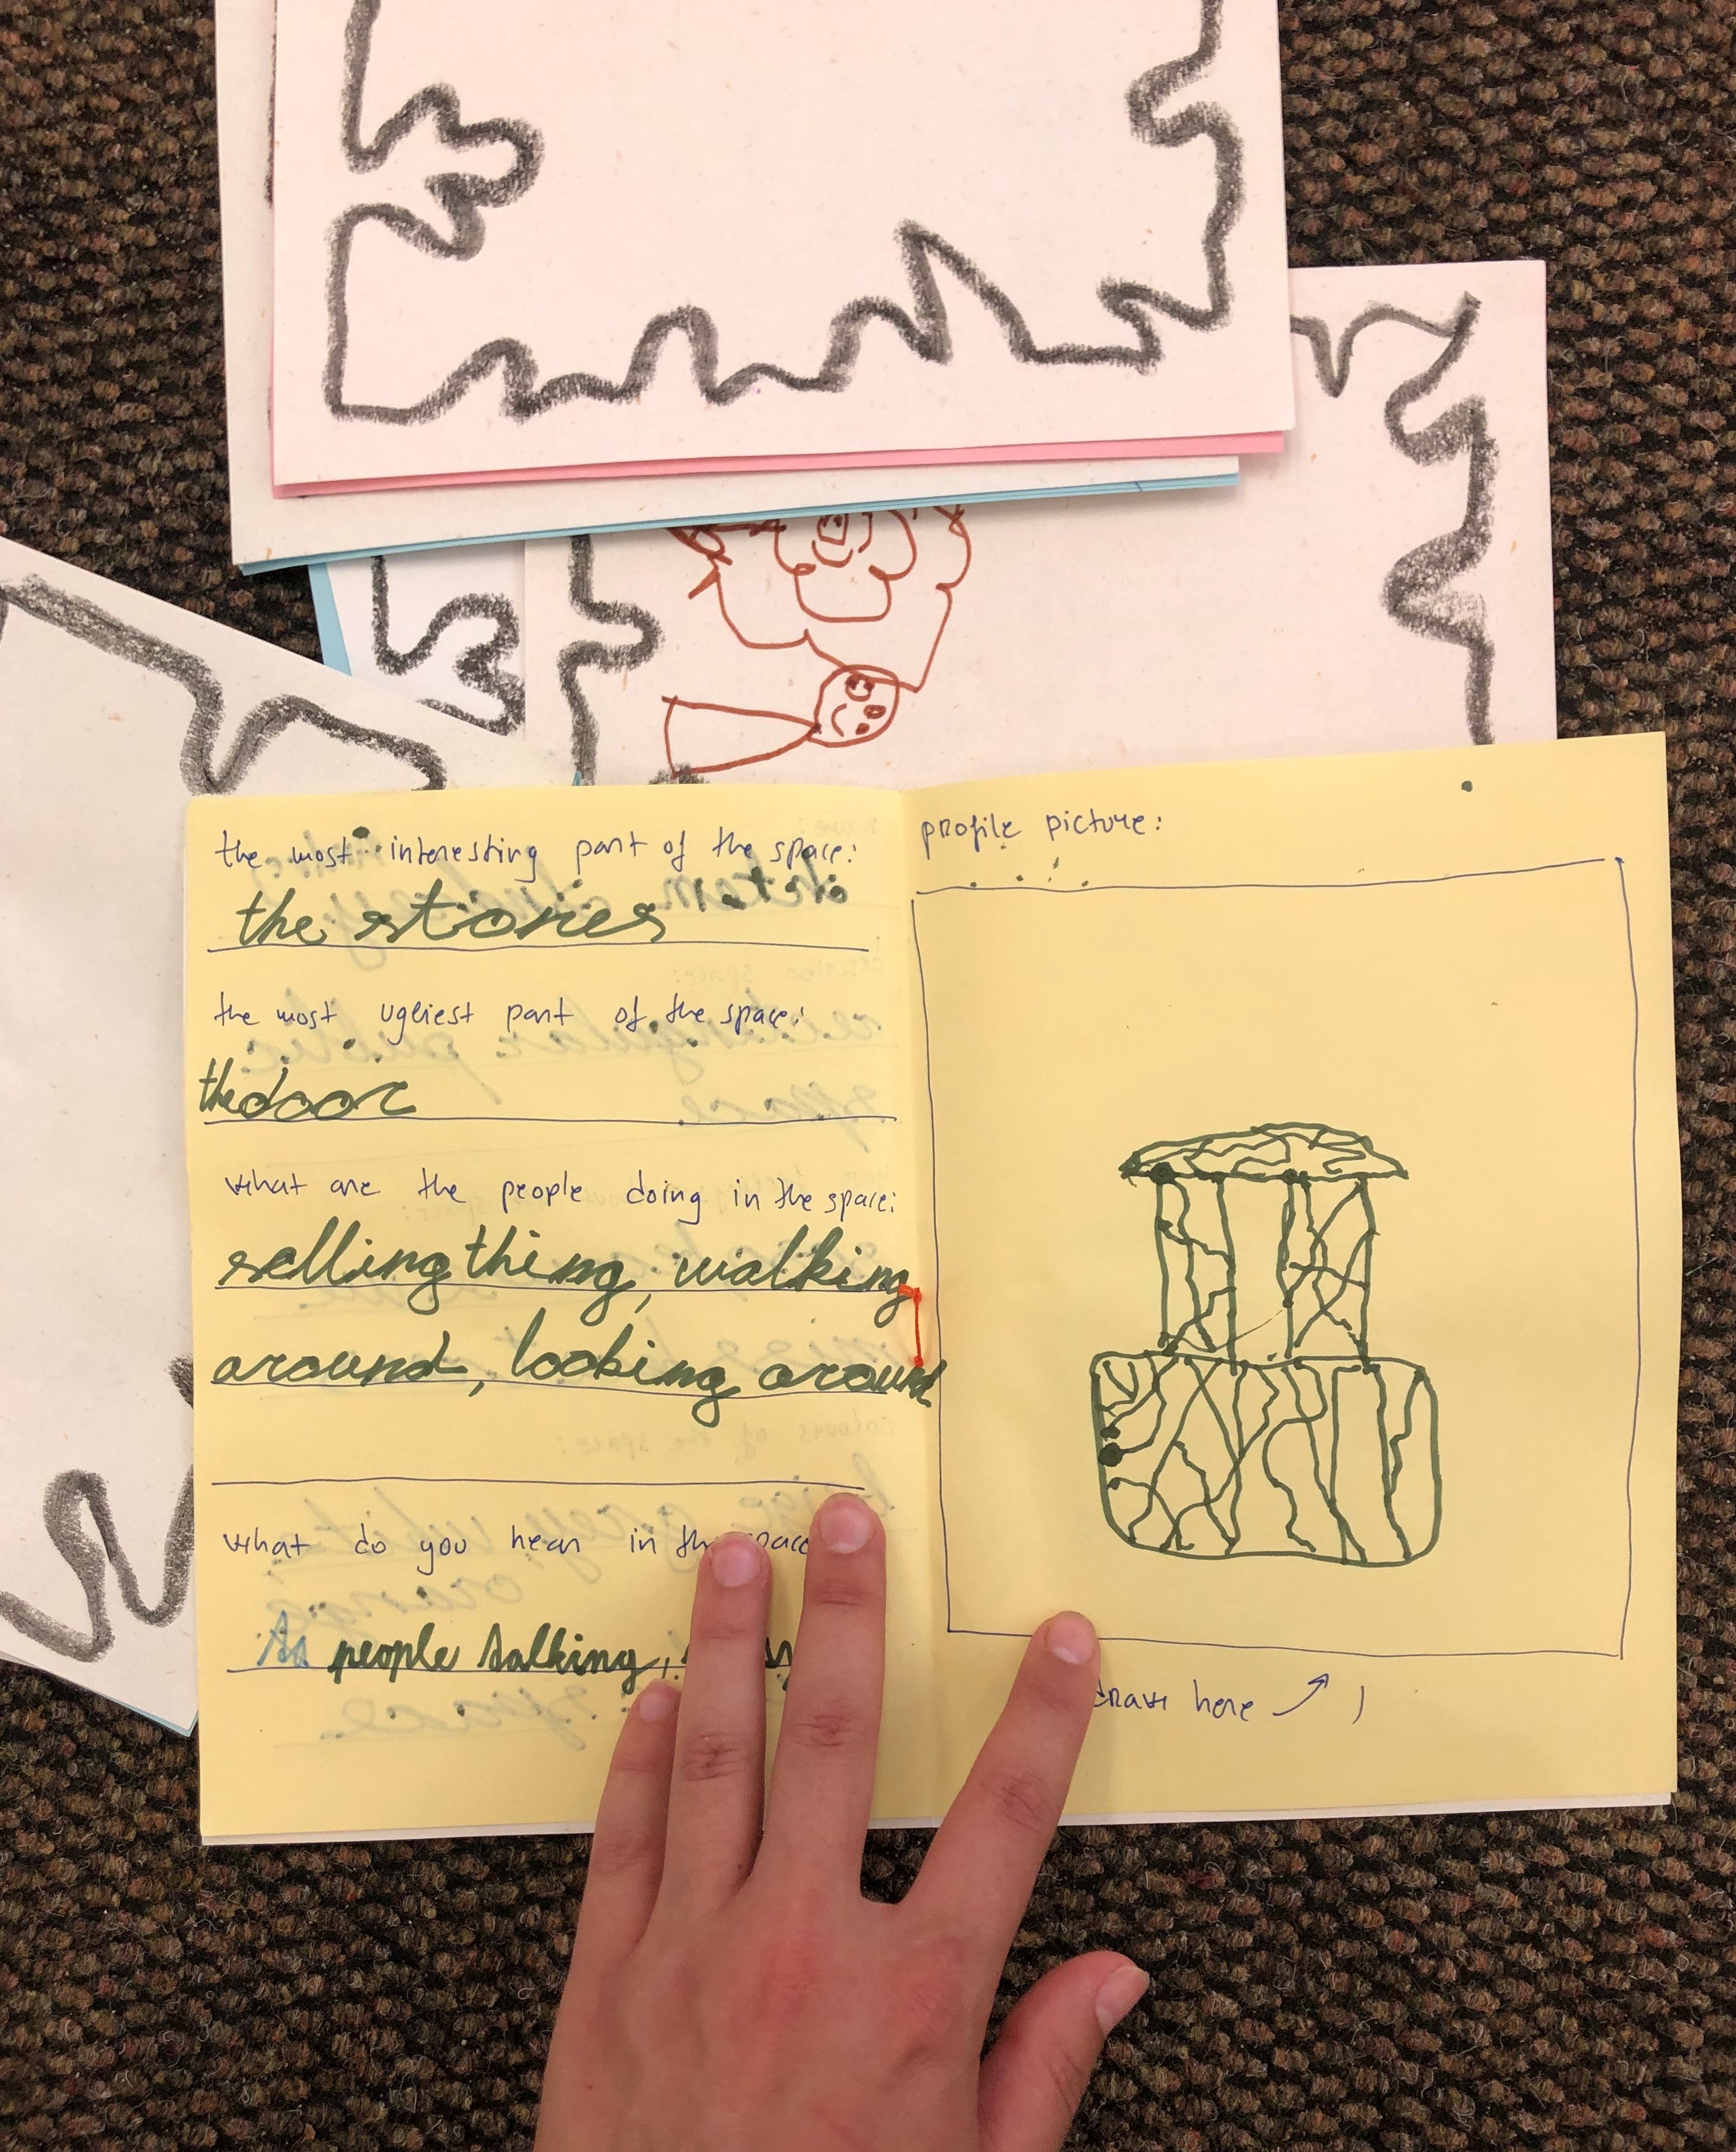 the most interesting part of the space:
the stories
the most ugliest part of the space:
the door
what are the people doing in the space:
selling thing, walking
around, looking around
what do you hear in the space
people talking,
profile picture:
draw here